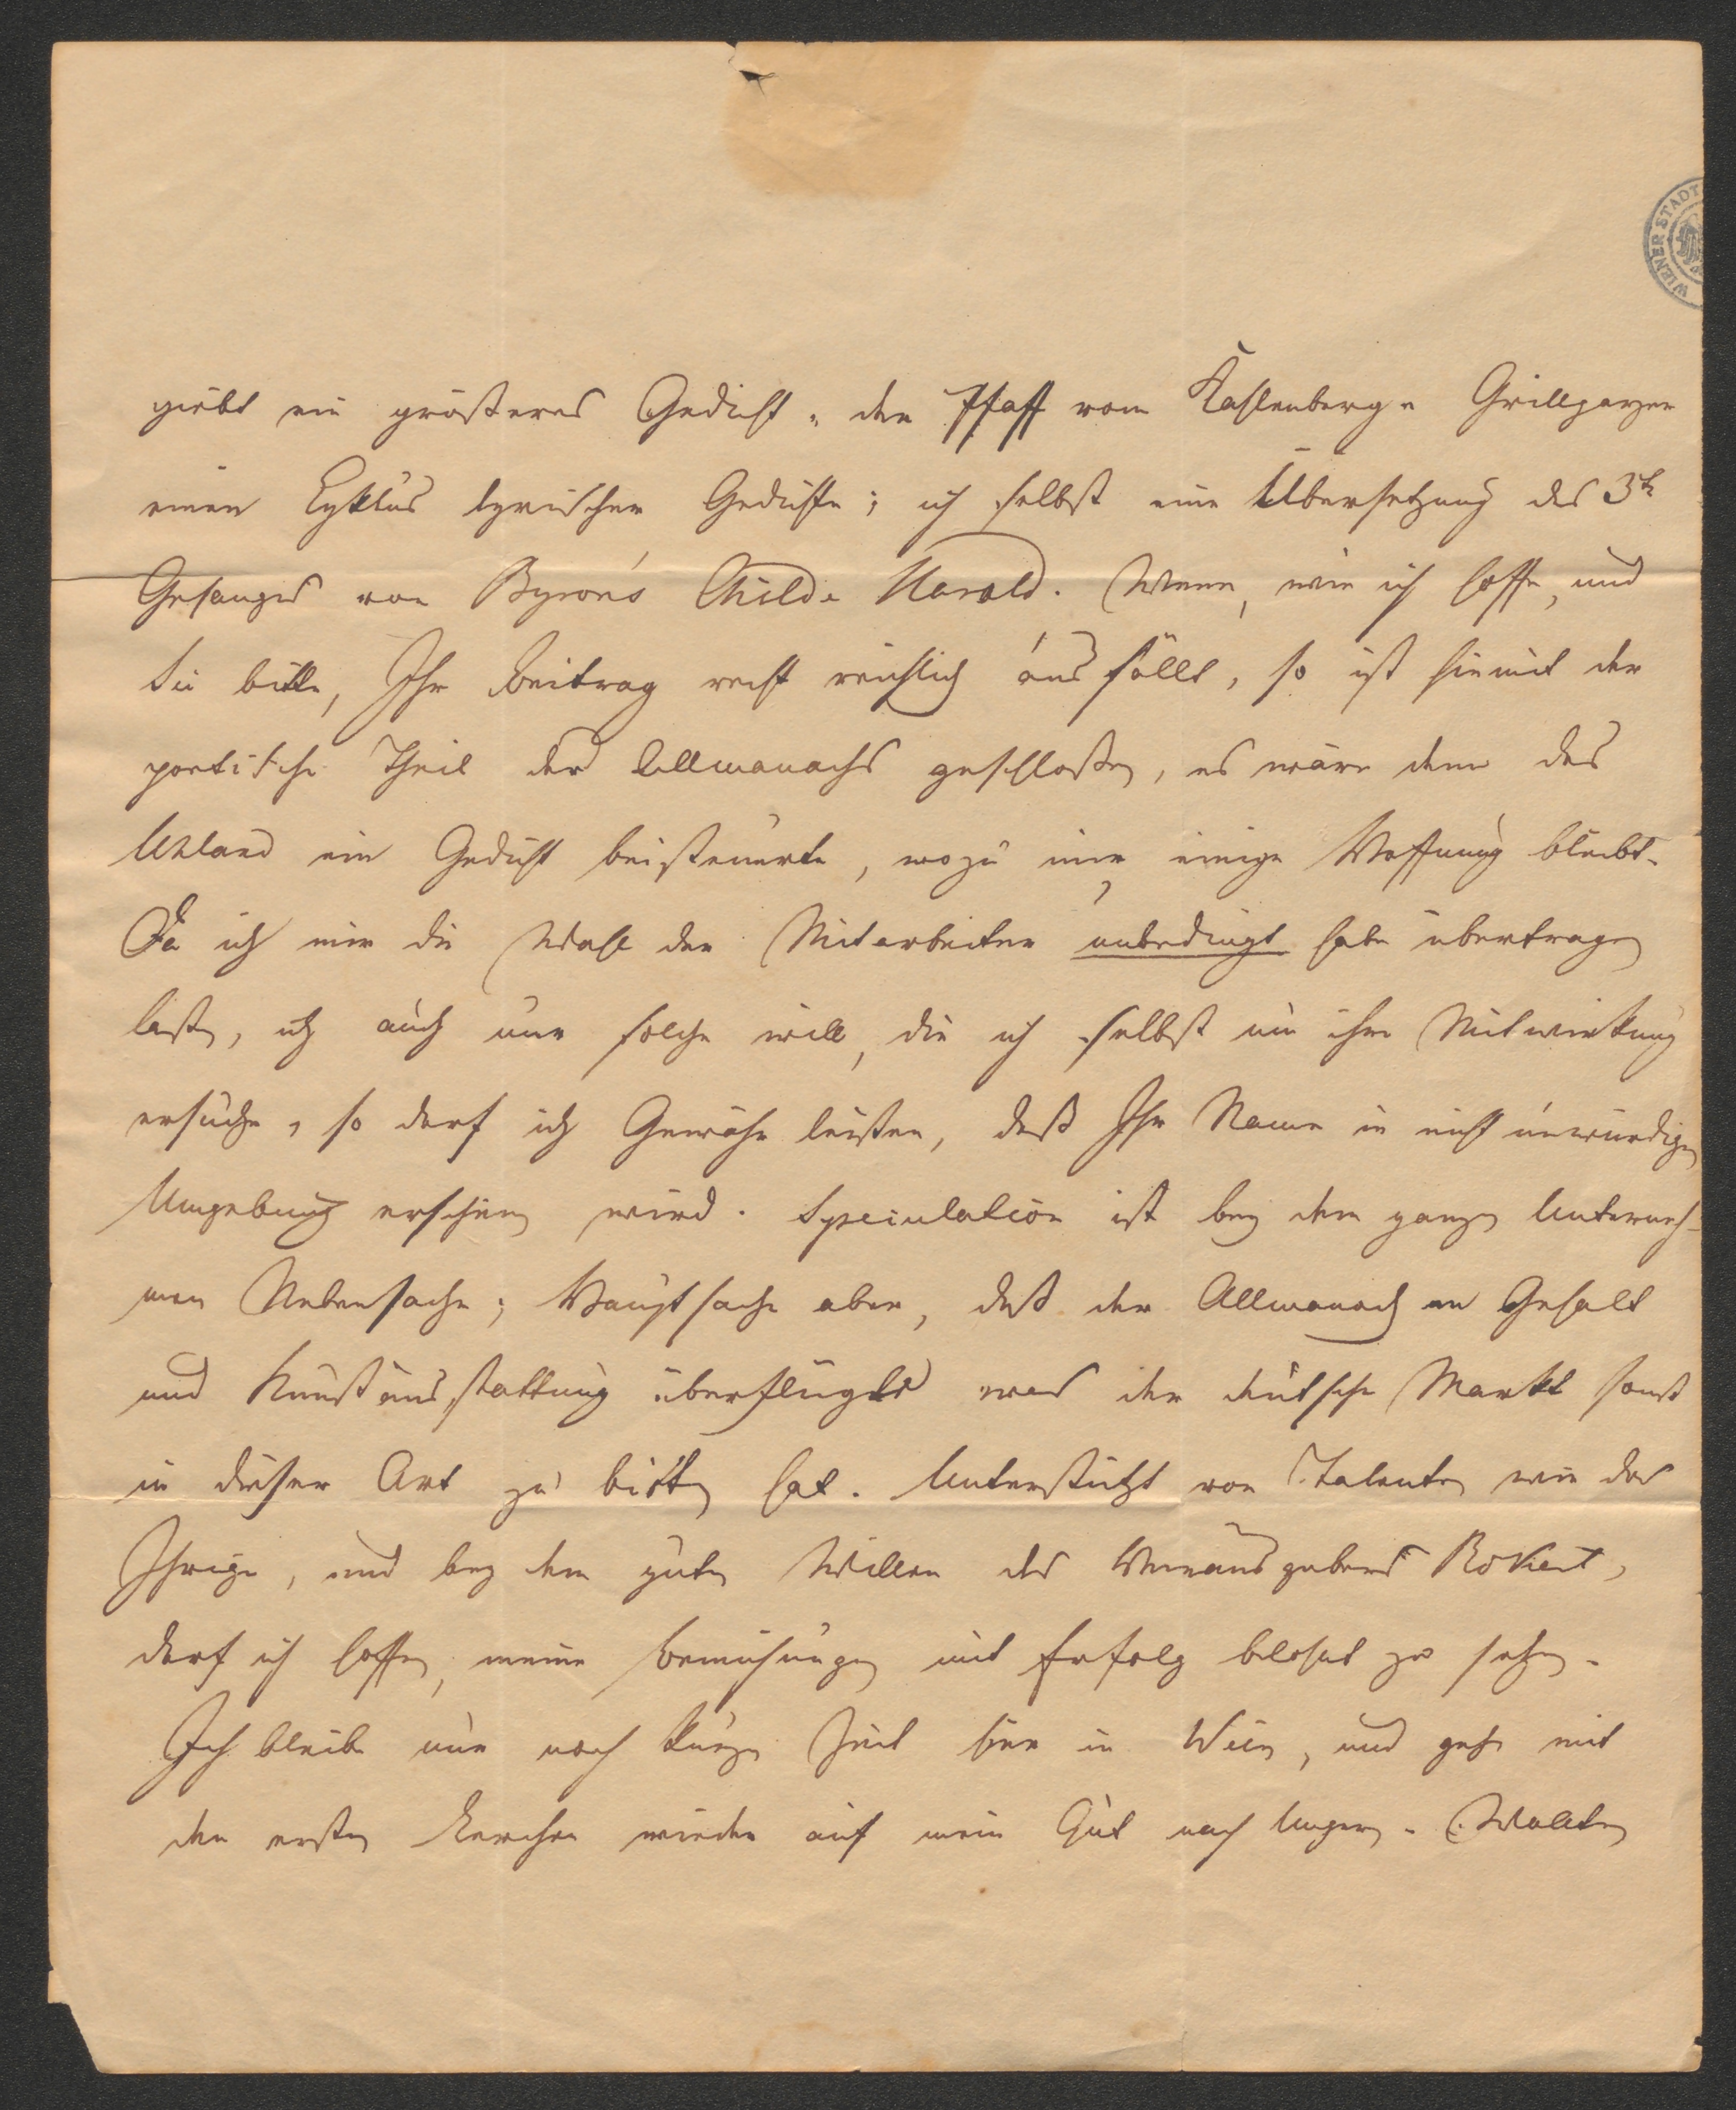 WIENER STADT
giebt ein größeres Gedicht „ den Pfaff vom Kahlenberg „ Grillparzer
einen Cyklus lyrischer Gedichte; ich selbst eine Übersetzung des 3t.
Gesanges von Byron's Child. Harold. Wenn, wie ich hoffe, und
Sie bitte, Ihr Beitrag recht reichlich ausfällt, so ist hiemit der
poetische Theil des Allmanachs geschloßen, es wäre denn das
Uhland ein Gedicht beisteuerte, wozu mir einige Hoffnung bleibt.
Da ich mir die Wahl der Mitarbeiter unbedingt habe übertragen
laßen, ich auch nur solche will, die ich selbst um ihre Mitwirkung
ersuche, so darf ich Gewähr leisten, daß Ihr Name in nicht unwürdiger
Umgebung erscheinen wird. Speculation ist bey dem ganzen Unterneh-
men Nebensache; Hauptsache aber, daß der Allmanach an Gehalt
und Kunstausstattung überflügle was der deutsche Markt sonst
in dieser Art zu bieten hat. Unterstützt von Talenten wie das
Ihrige, und bey dem guten Willen des Herausgebers
darf ich hoffen, meine Bemühungen mit Erfolg belohnt zu sehen.
Ich bleibe nur noch kurze Zeit hier in Wien, und gehe mit
den ersten Lerchen wieder auf mein Gut nach Ungarn. Wollten